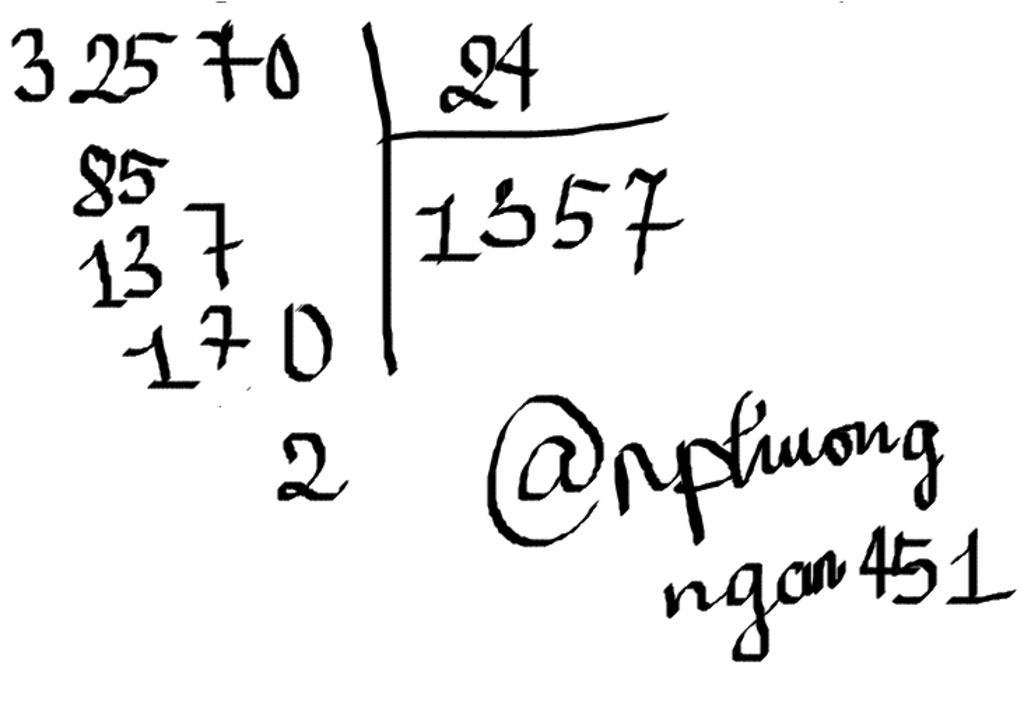 32570 24
85 1357
137
170
2
@nphuong
ngan451